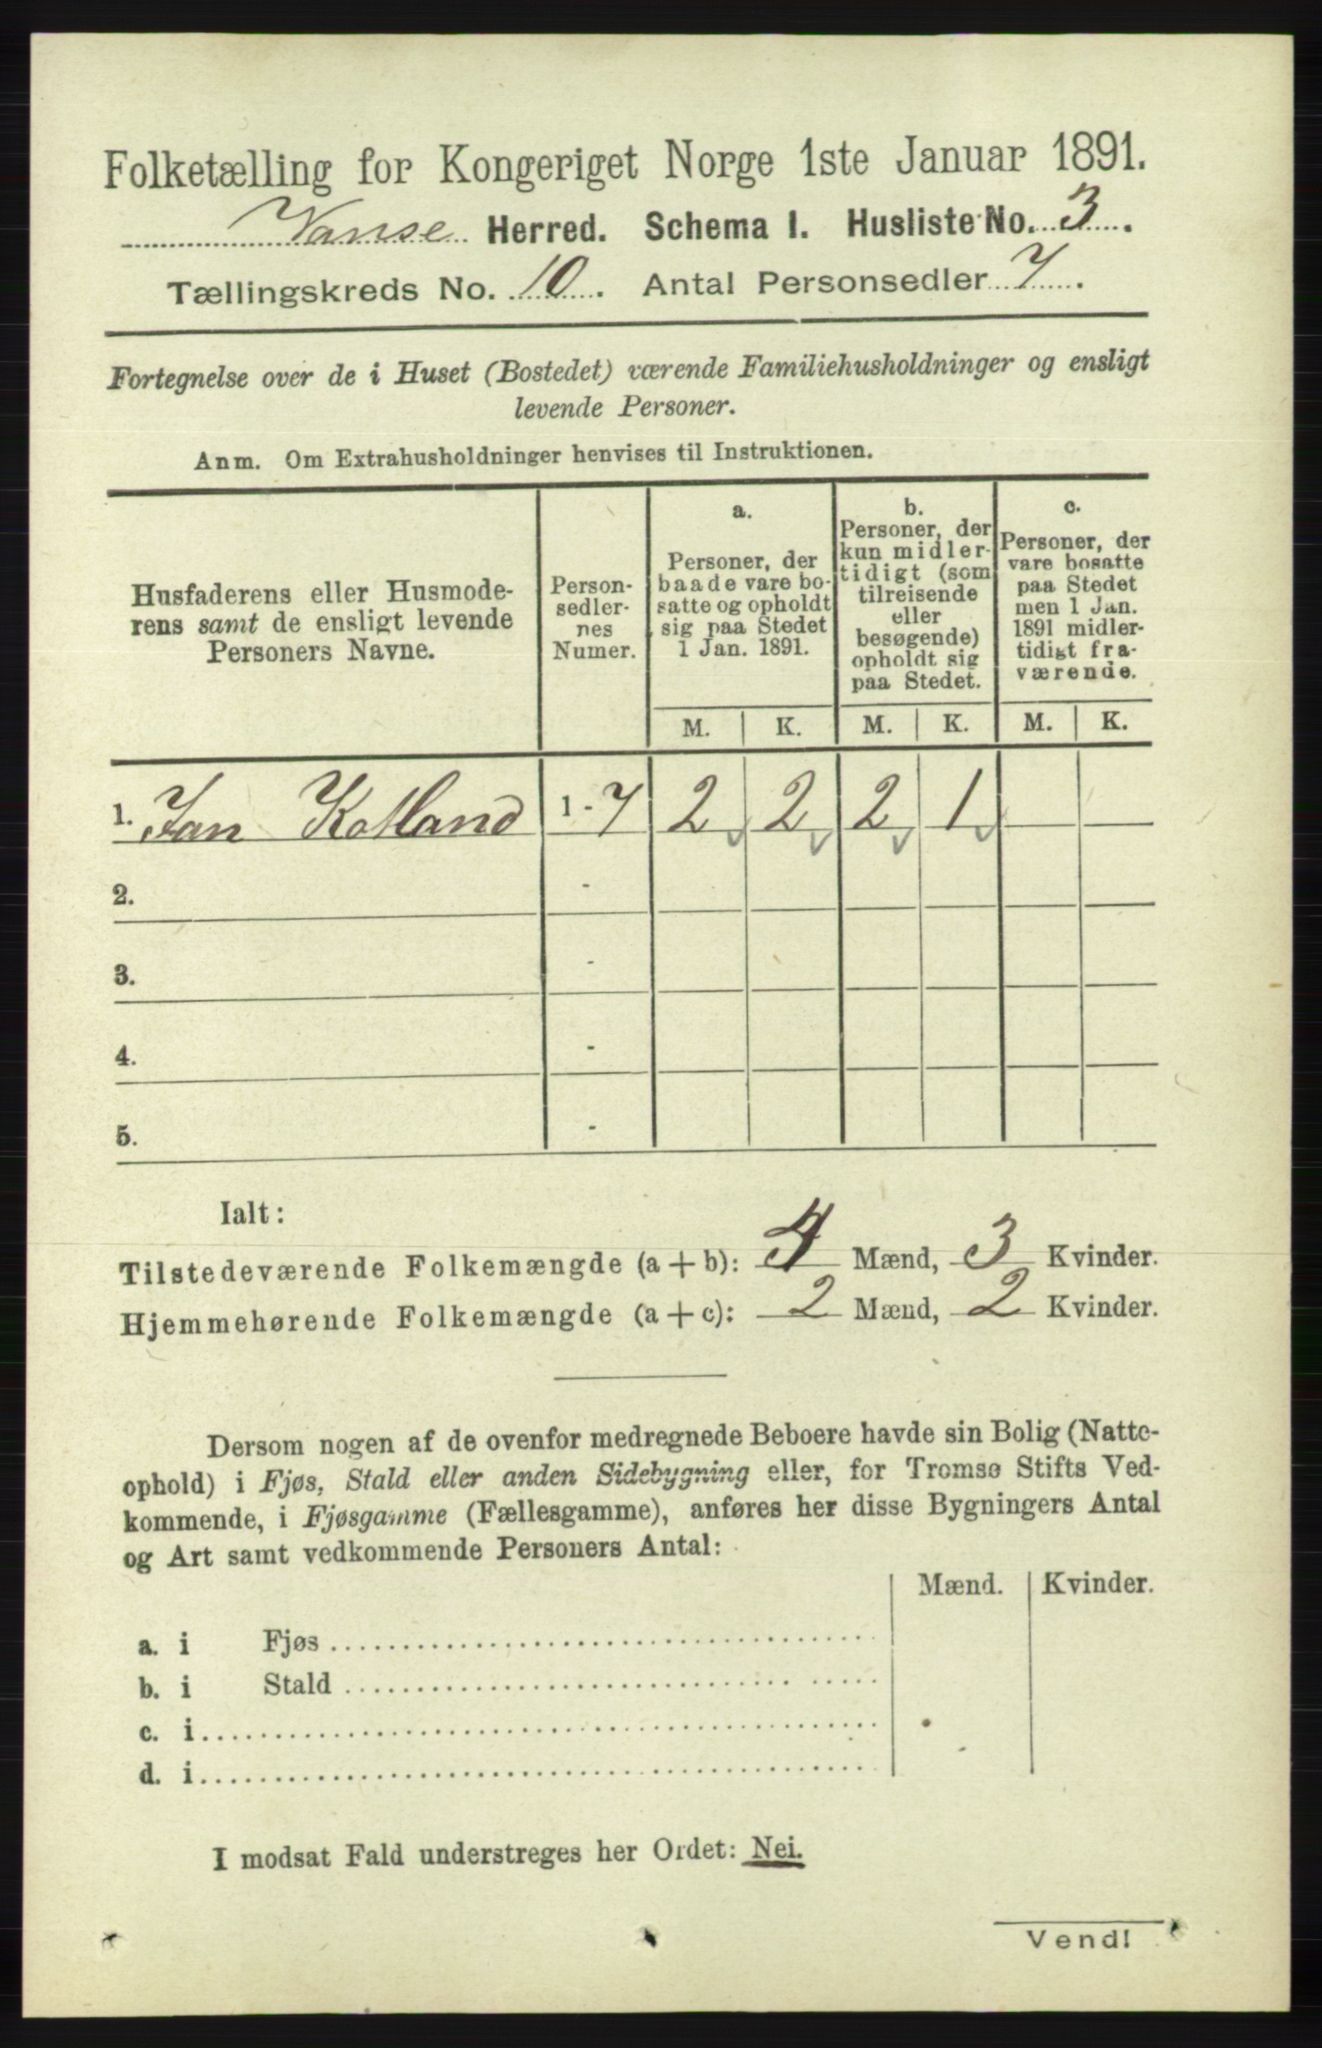 Folketælling for Kongeriget Norge 1ste Januar 1891.
Vanse Herred. Schema I. Husliste No. 3.
Tællingskreds No. 10. Antal Personsedler 7.
Fortegnelse over de i Huset (Bostedet) værende Familiehusholdninger og ensligt
levende Personer.
Anm. Om Extrahusholdninger henvises til Instruktionen.
Husfaderens eller Husmode-
rens samt de ensligt levende
Personers Navne.
Person-
sedler-
nes
Numer.
a.
Personer, der
baade vare bo-
satte og opholdt
sig paa Stedet
1 Jan. 1891.
b.
Personer, der
kun midler-
tidigt (som
tilreisende
eller
besøgende)
opholdt sig
paa Stedet.
c.
Personer, der
vare bosatte
paa Stedet
men 1 Jan.
1891 midler-
tidigt fra-
værende.
M. K. M. K. M. K.
1. Jan Kolland 1-7 2 2 2 1
2. -
3. -
4. -
5. -
Ialt:
Tilstedeværende Folkemængde (a+b): 4 Mænd, 3 Kvinder.
Hjemmehørende Folkemængde (a+c): 2 Mænd, 2 Kvinder.
Dersom nogen af de ovenfor medregnede Beboere havde sin Bolig (Natte-
ophold) i Fjøs, Stald eller anden Sidebygning eller, for Tromsø Stifts Ved-
kommende, i Fjøsgamme (Fællesgamme), anføres her disse Bygningers Antal
og Art samt vedkommende Personers Antal:
Mænd. Kvinder.
a. i Fjøs
b. i Stald
c. i
d. i
I modsat Fald understreges her Ordet: Nei.
Vend!